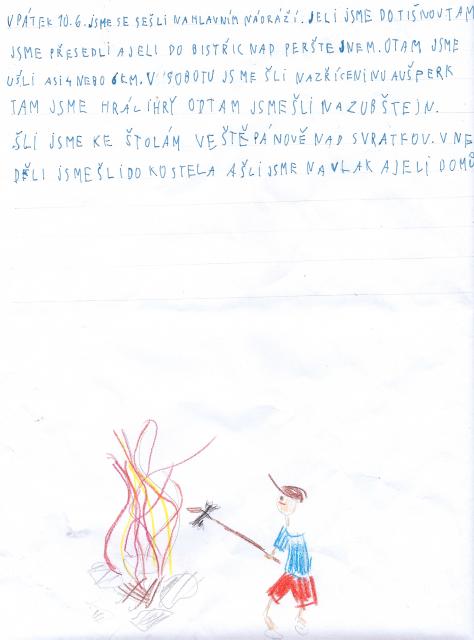 V PÁTEK 10.6. JSME SE SEŠLI NA HLAVNÍM NÁDRAŽÍ. JELI JSME DO TIŠNOV TAM
JSME PŘESEDLI A JELI DO BISTŘIC NAD PERŠTEJNEM. OTAM JSME
UŠLI ASI 4 NEBO 6 KM. V SOBOTU JSME ŠLI NA ZŘÍCENINU AUŠPERK
TAM JSME HRÁLI HRY ODTAM JSME ŠLI NA ZUBŠTEJN.
ŠLI JSME KE ŠTOLÁM VE ŠTĚPÁNOVĚ NAD SVRATKOU. V NE
DĚLI JSME ŠLI DO KOSTELA A ŠLI JSME NA VLAK A JELI DOMŮ